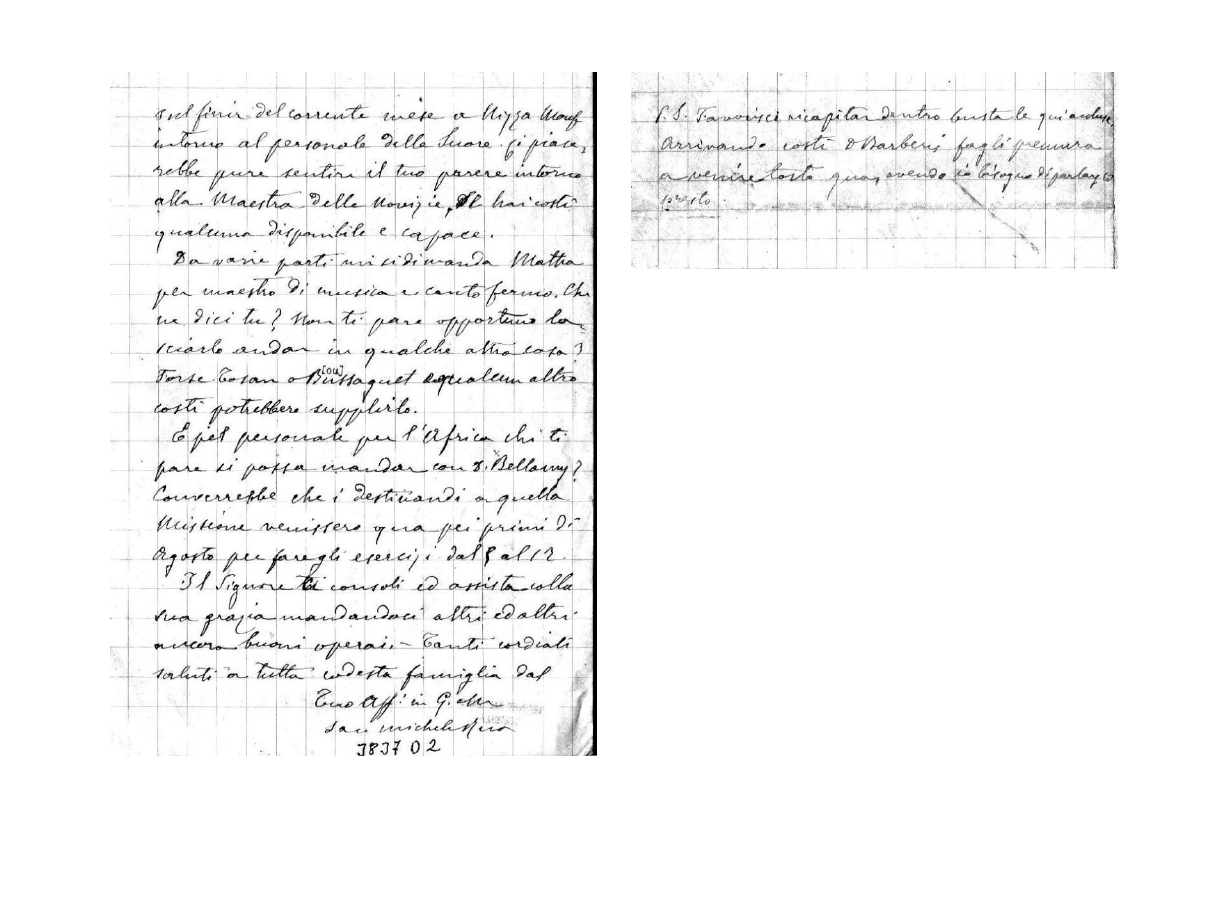 sul finir del corrente mese a Nizza Monf
intorno al personale delle Suore. Ci piace-
rebbe pure sentire il tuo parere intorno
alla Maestra delle Novizie, se hai costì
qualcuna disponibile e capace.
Da varie parti mi si dimanda Mattia
per maestro di musica e canto fermo. Che
ne dici tu? Non ti pare opportuno la-
sciarlo andar in qualche altra casa?
Forse Tosan o Bussaguet [ou] o qualcun altro
costì potrebbero supplirlo.
E pel personale per l'Africa chi ti
pare si possa mandar con D. Bellamy?
Converrebbe che i destinandi a quella
Missione venissero qua pei primi di
Agosto per fare gli esercizi dal 5 al 12.
Il Signore ti consoli ed assista colla
sua grazia mandandoci altri ed altri
ancora buoni operai. - Tanti cordiali
saluti a tutta codesta famiglia dal
Tuo Aff. in G. e M.
Sac Michele Rua
3837 D 2
P.S. Favorisci ricapitar dentro busta le qui accluse.
Arrivando costì D Barberis fagli premura
a venire tosto qua, avendo io bisogno di parlargli
presto.